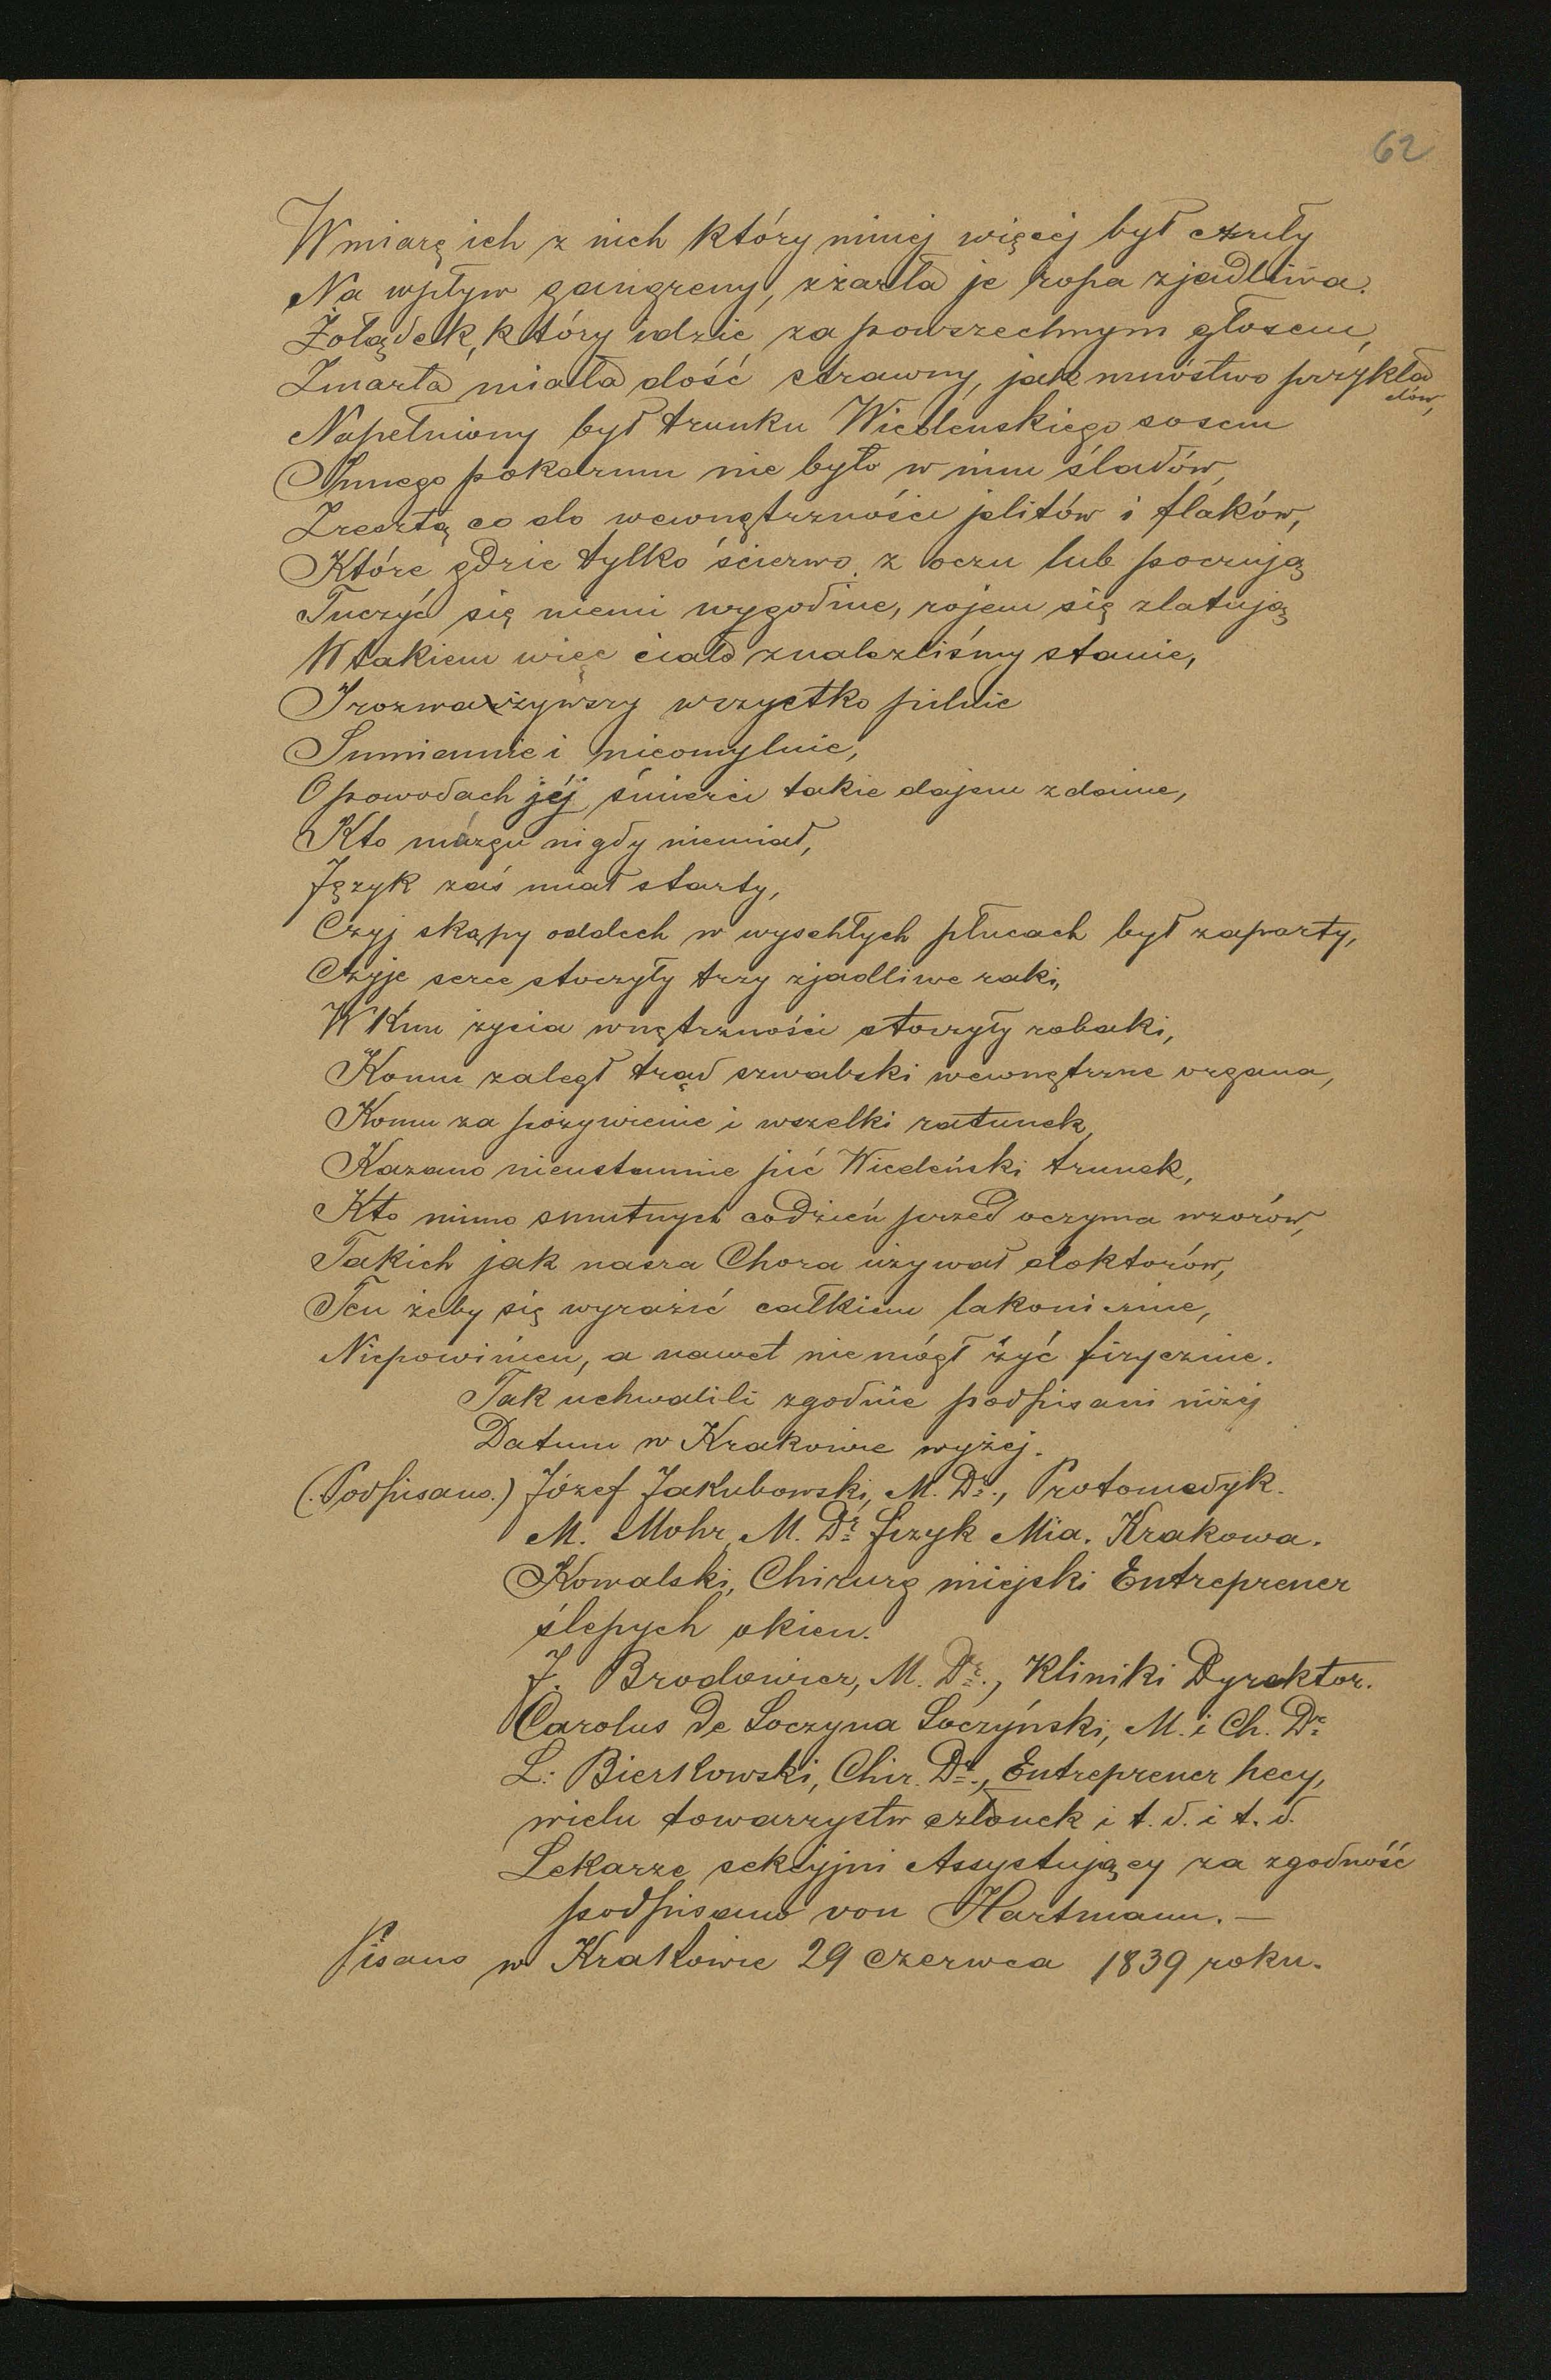 62
W miarę ich z nich który mniej więcej był czuły
Na wpływ gangreny, zżarła je ropa zjadliwa.
Żołądek, który idzie za powszechnym głosem,
Zmarła miała dość strawny, jak mnóstwo przykła
dów,
Napełniony był trunku Wiedeńskiego sosem
Innego pokarmu nie było w nim śladów,
Zresztą co do wewnętrzności jelitów i flaków,
Które gdzie tylko ścierwo z oczu lub poczują
Tuczyć się niemi wygodnie, rojem się zlatują
W takiem więc ciało znaleźliśmy stanie,
I rozważywszy wszystko pilnie
Sumiennie i nieomylnie,
O powodach jéj śmierci takie dajem zdanie,
Kto mózgu nigdy niemiał,
Język zaś miał starty,
Czyj skąpy oddech w wyschłych płucach był zaparty,
Czyje serce stoczyły trzy zjadliwe raki,
W Kim życia wnętrzności stoczyły robaki,
Komu zaległ trąd szwabski wewnętrzne organa,
Komu za pożywienie i wszelki ratunek,
Kazano nieustannie pić Wiedeński trunek,
Kto mimo smutnych codzień przed oczyma wzorów,
Takich jak nasza Chora używał doktorów,
Ten żeby się wyrazić całkiem lakonicznie,
Niepowinien, a nawet nie mógł żyć fizycznie.
Tak uchwalili zgodnie podpisani niżej
Datum w Krakowie wyżej.
(.Podpisano.) Józef Jakubowski, M. Dr., Protomedyk.
M. Mohr, M. Dr fizyk Mia. Krakowa.
Kowalski, Chirurg miejski Entreprener
ślepych okien.
J. Brodowicz, M. Dr., Kliniki Dyrektor.
Carolus de Soczyna Soczyński, M. i Ch. Dr
L: Bierkowski, Chir. Dr., Entreprener hecy,
wielu towarzystw członek i t. d. i t. d.
Lekarze sekcyjni Assystujący za zgodność
podpisano von Hartmann. —
Pisano w Krakowie 29 czerwca 1839 roku.